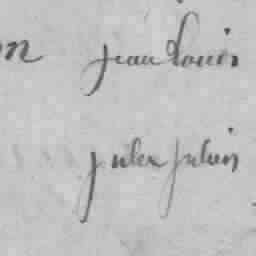 on jean Louis
jules julien